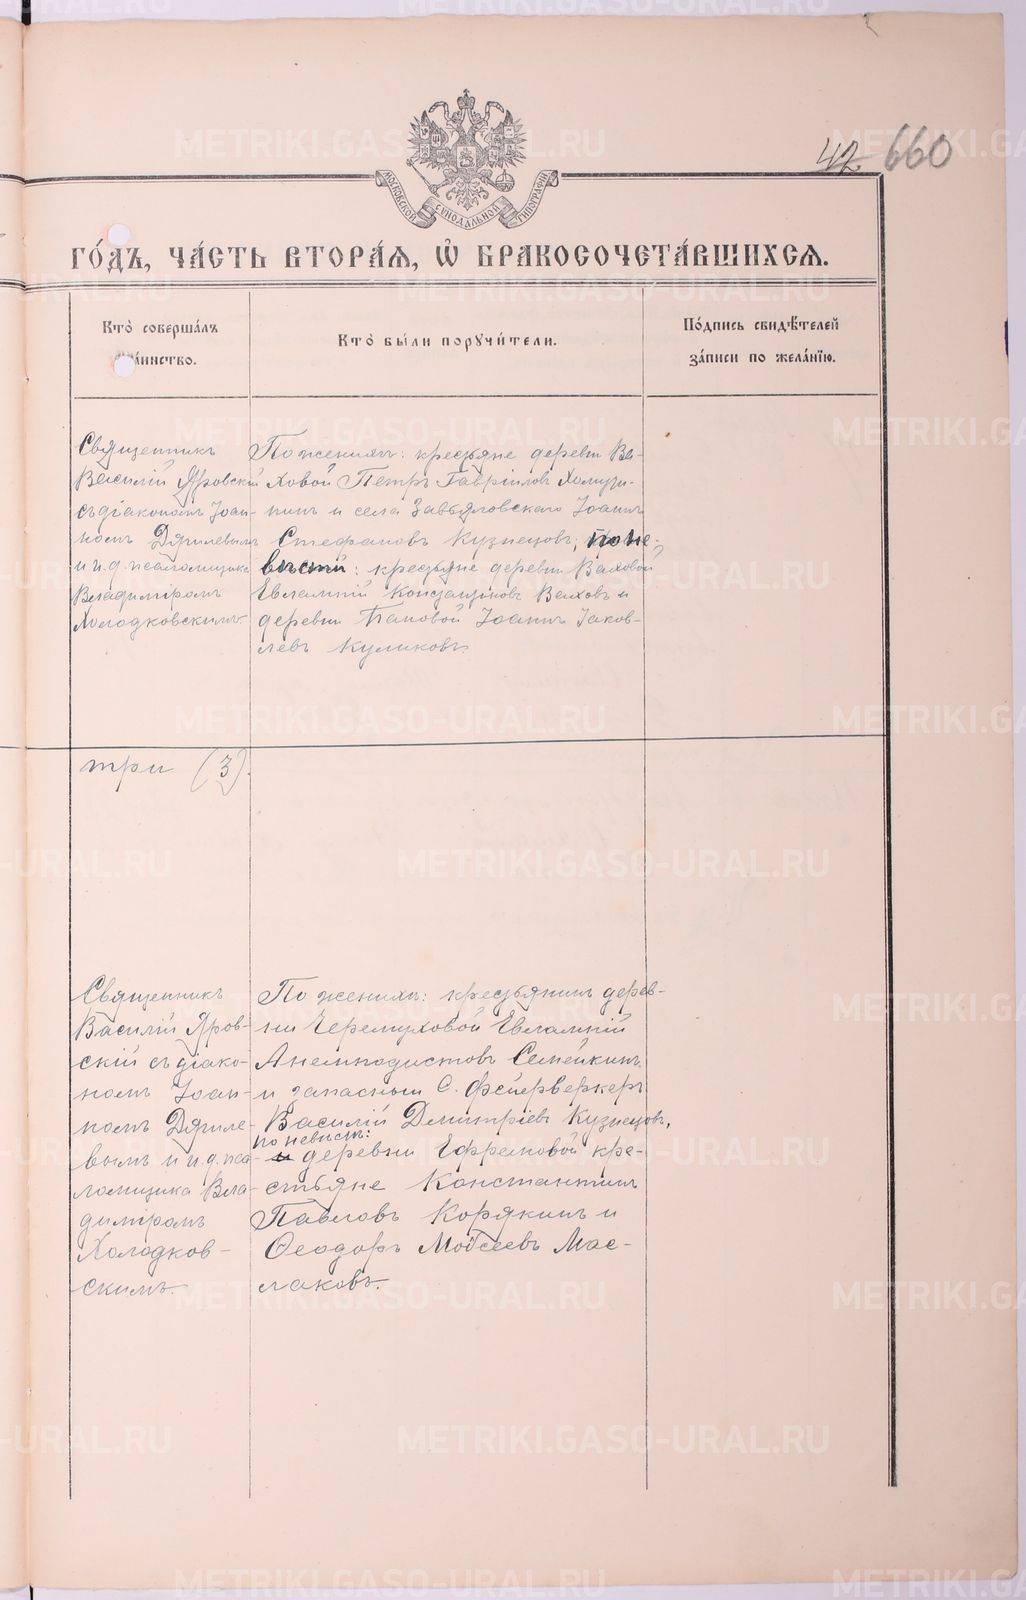 42 660
МОСКОВСКОЙ СѴНОДАЛЬНОЙ ТИПОГРАФІИ
ГО́ДЪ, ЧА́СТЬ ВТОРА́Я, Ѡ҆ БРАКОСОЧЕТА́ВШИХСЯ.
Кто̀ соверша́лъ
та́инство.
Кто̀ бы́ли порꙋчи́тели.
По́дпись свидѣ́телей
за́писи по жела́нїю.
Священникъ
Василій Яровскій
съ діакономъ Іоан-
номъ Дягилевымъ
и и. д. псаломщика
Владиміромъ
Холодковскимъ.
По женихѣ: крестьяне деревни Ва-
ховой Петръ Гавріиловъ
и села Завьяловскаго Іоаннъ
Стефановъ Кузнецовъ; по не-
вѣстѣ: крестьяне деревни Ваховой
Евлампій Ваховъ и
деревни Пановой Іоаннъ Іаков-
левъ Куликовъ.
три (3).
Священникъ
Василій Яров-
скій съ діако-
номъ Іоан-
номъ Дягиле-
вымъ и и. д. пса-
ломщика Вла-
диміромъ
Холодков-
скимъ.
По женихѣ: крестьянинъ дерев-
ни Черемуховой Евлампій
Анемподистовъ Семейкинъ
и запасный С. фейерверкеръ
Василій Димитріевъ Кузнецовъ,
по невѣстѣ:
и деревни Ефремовой кре-
стьяне Константинъ
Павловъ Корякинъ и
Ѳеодоръ Моѵсеевъ Мас-
лаковъ.
METRIKI.GASO-URAL.RU